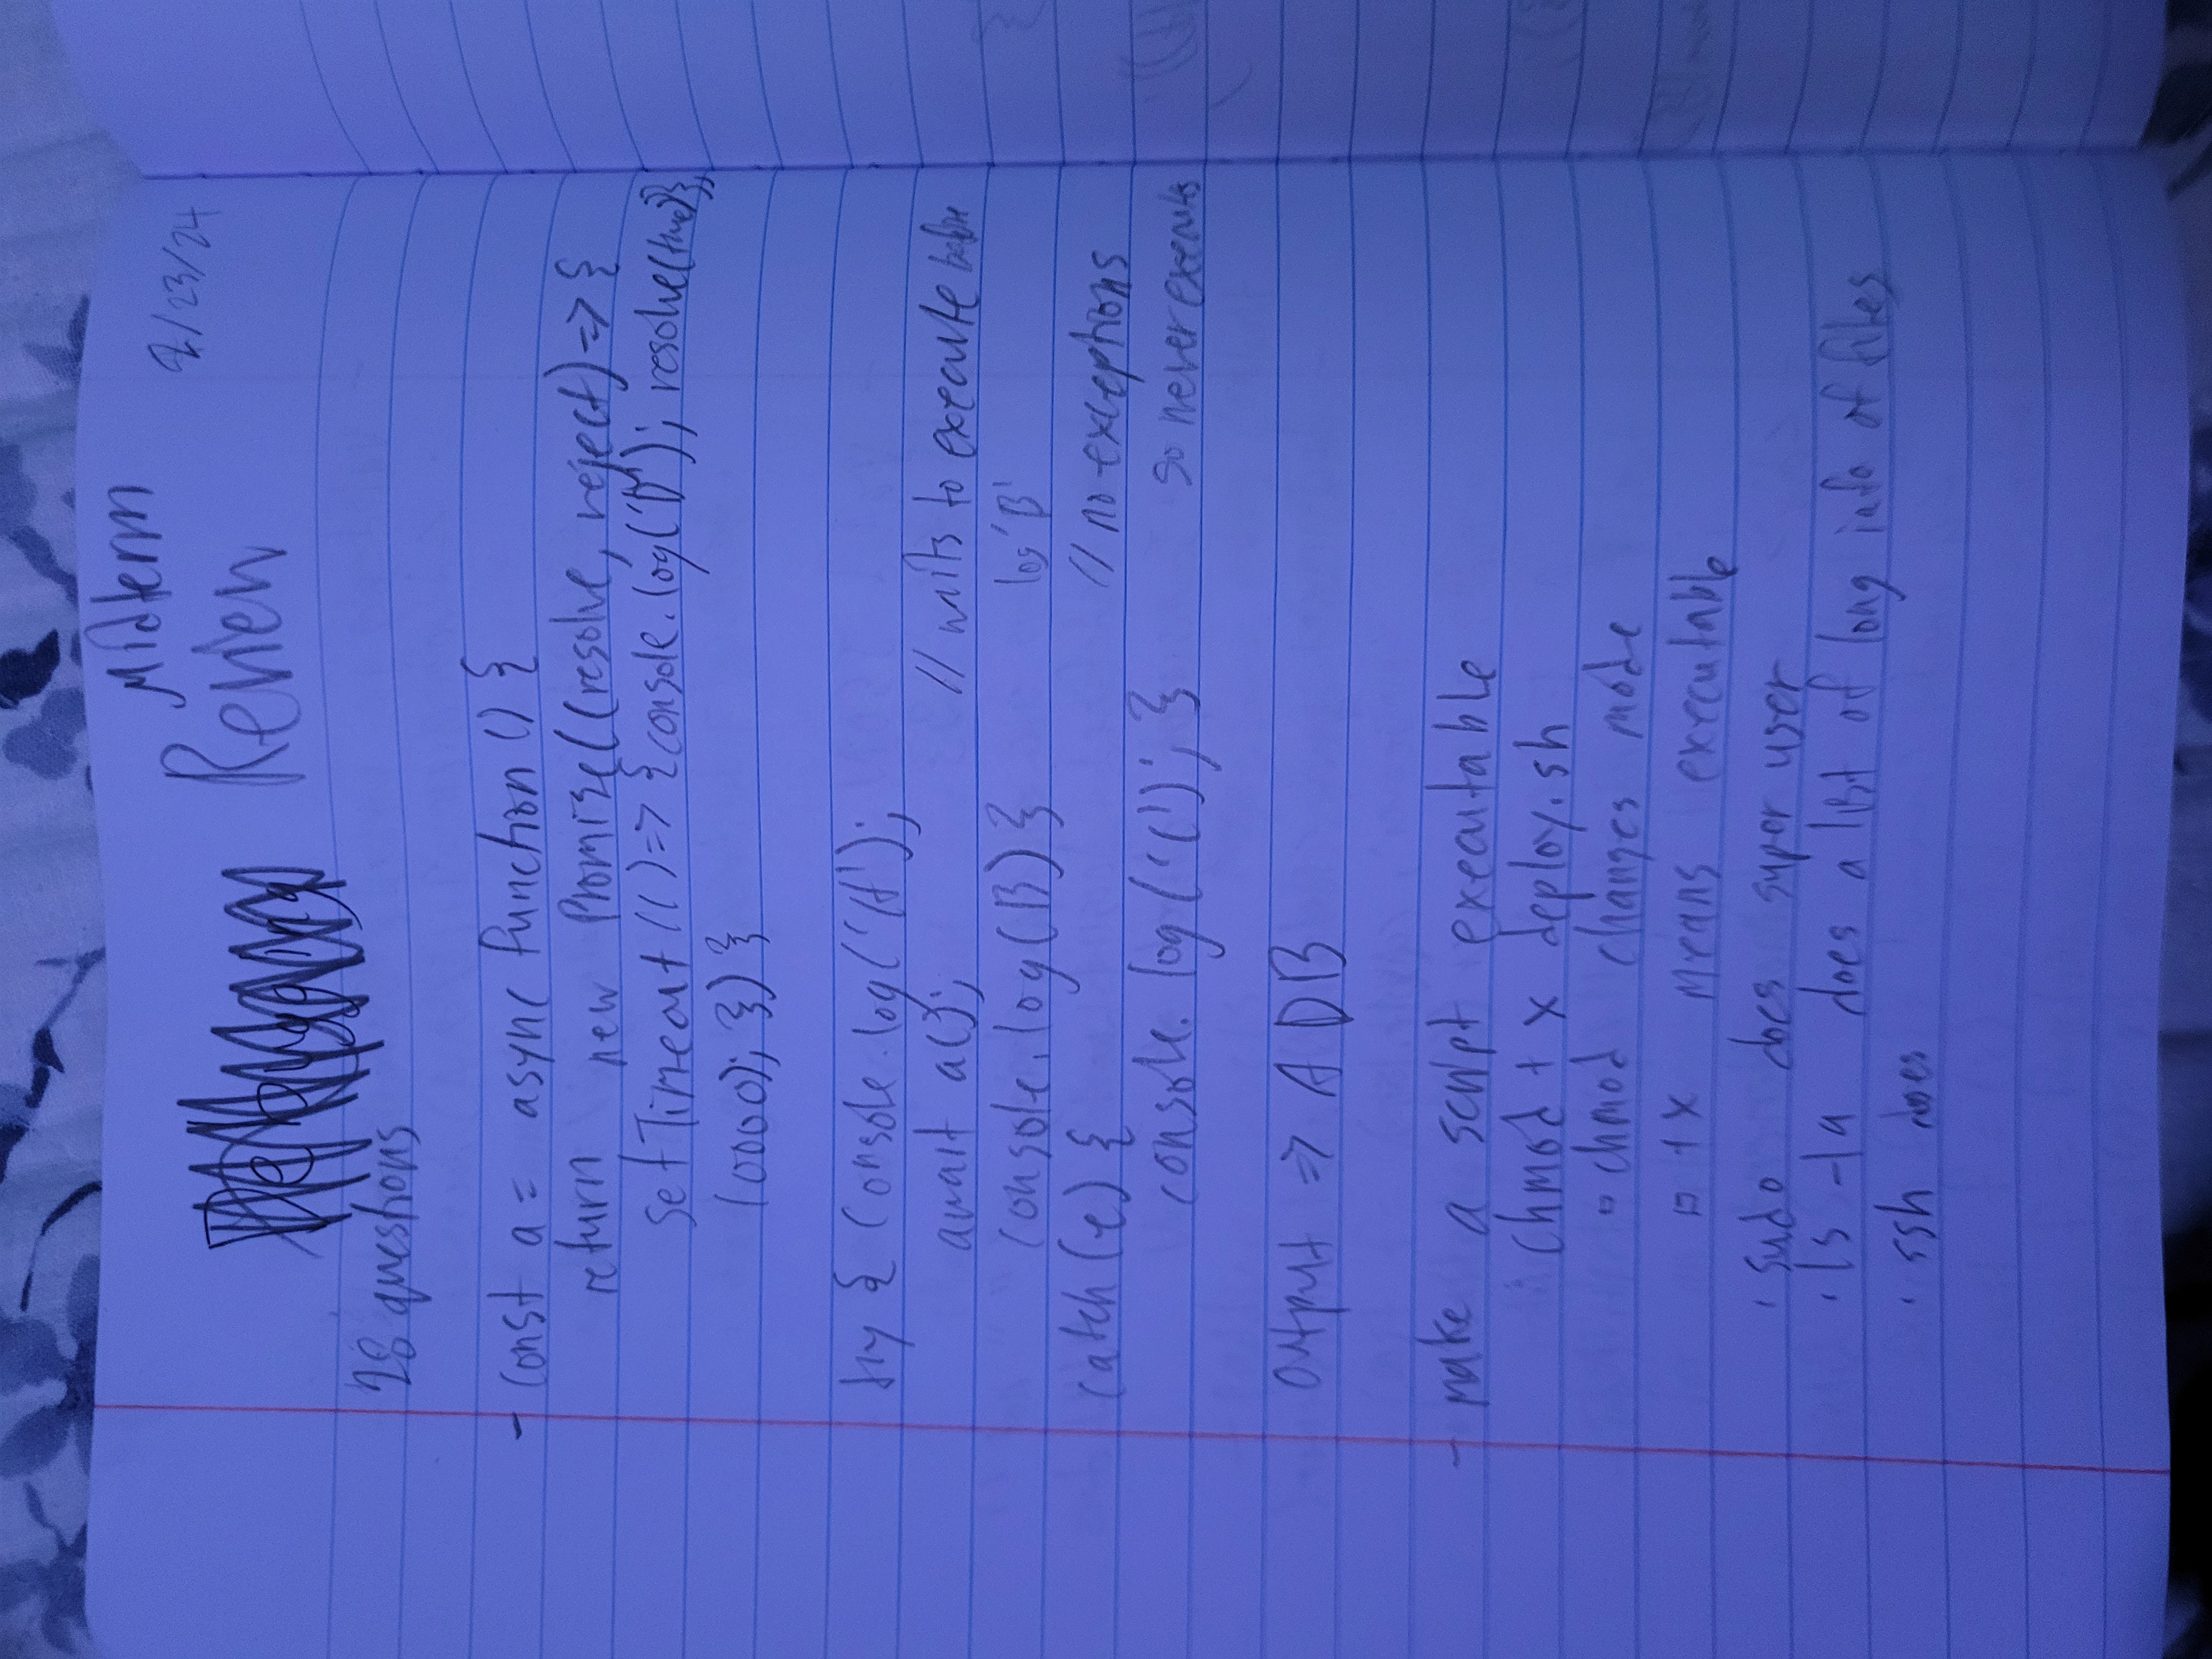 Midterm
Review
2/23/24
28 questions
- const a = async function () {
return new Promise((resolve, reject) => {
setTimeout(() => {console.log('D'); resolve(true)},
10000); }) }
try { console.log('A');
await a(); // waits to execute before
console.log(B) } log 'B'
catch (e) { // no exceptions
console.log('C'); } so never executes
output => A D B
- make a script executable
chmod + x deploy.sh
▫ chmod changes mode
▫ +x means executable
· sudo does super user
· ls -la does a list of long info of files
· ssh does